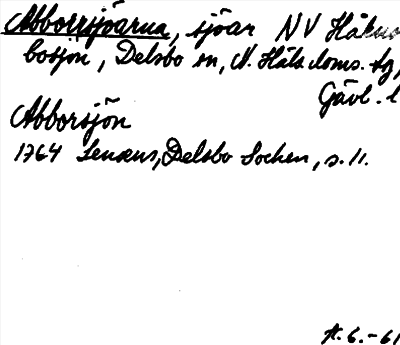 Abborrsjöarna, sjöar NV Håkno
bosjön, Delsbo sn, N. Häls. doms. tg,
Gävl. l
Abborsjön
1764 Lenæus, Delsbo Socken, s. 11.
A. 6. -61